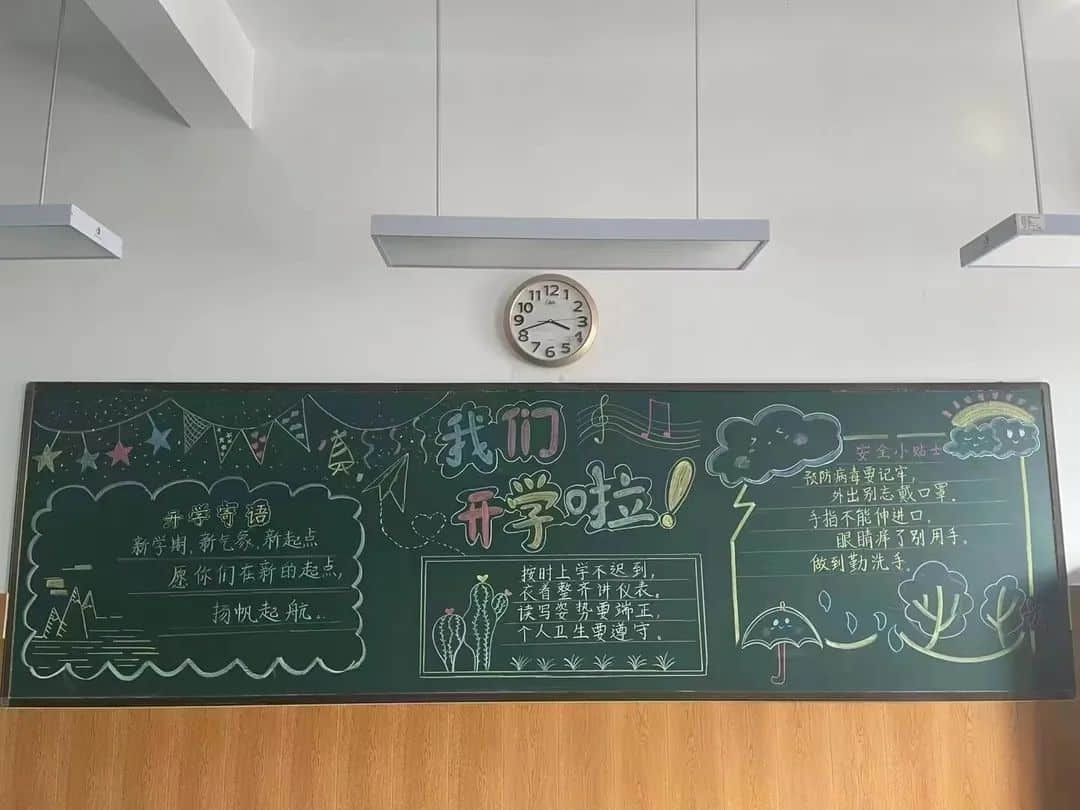 我们
开学啦！
开学寄语
新学期，新气象，新起点
愿你们在新的起点，
扬帆起航。
按时上学不迟到，
衣着整齐讲仪表。
读写姿势要端正，
个人卫生要遵守。
安全小贴士
预防病毒要记牢，
外出别忘戴口罩。
手指不能伸进口，
眼睛痒了别用手。
做到勤洗手。
12
1
2
3
4
5
6
7
8
9
10
11